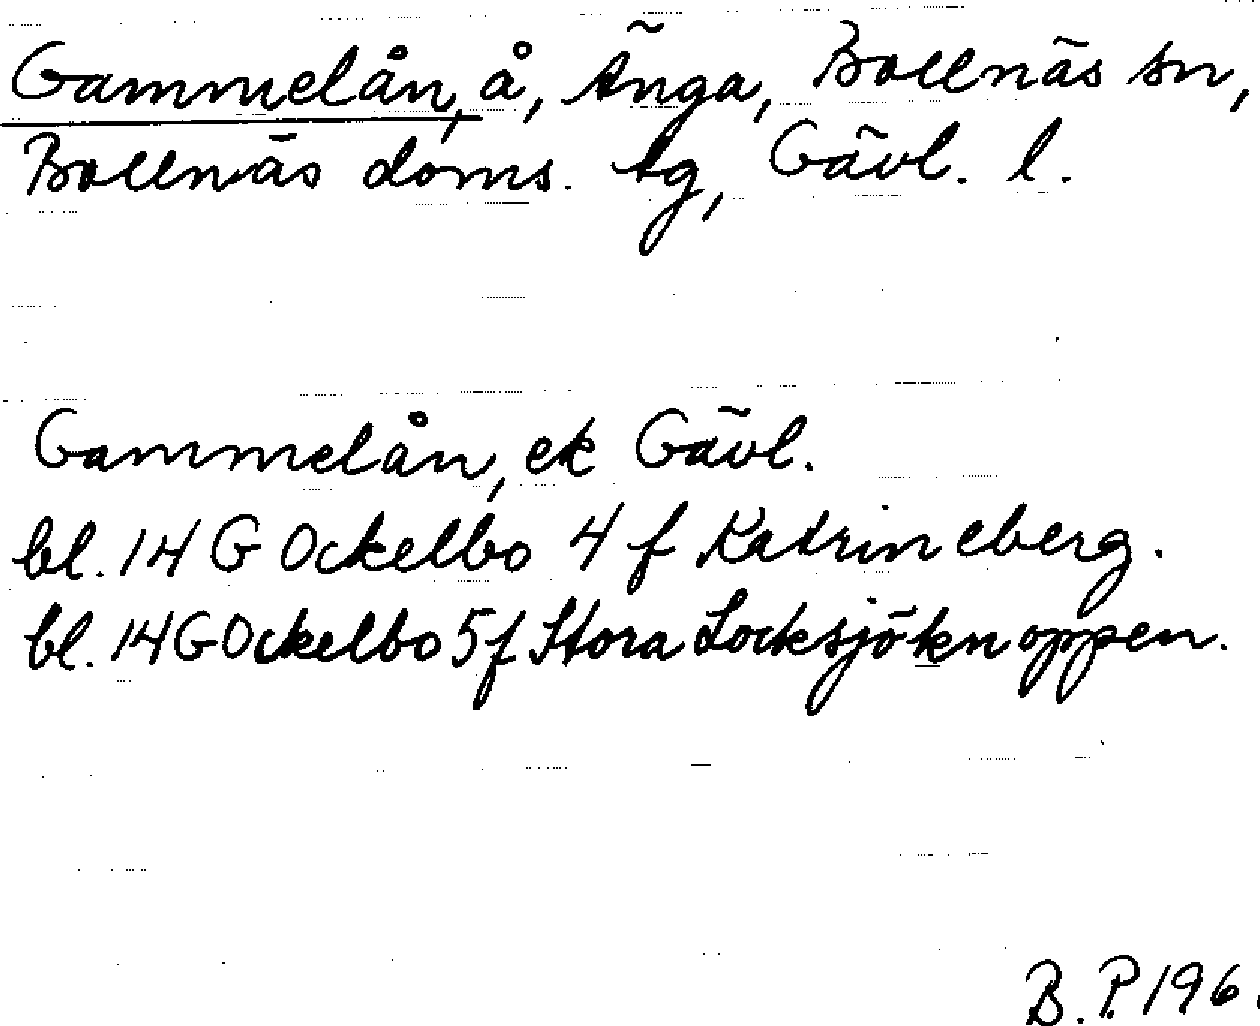 Gammelån, å, Änga, Bollnäs sn,
Bollnäs doms. tg, Gävl. l.
Gammelån, ek Gävl.
bl. 14 G Ockelbo 4 f Katrineberg.
bl. 14 G Ockelbo 5 f Stora Locksjöknoppen.
B. P. 196